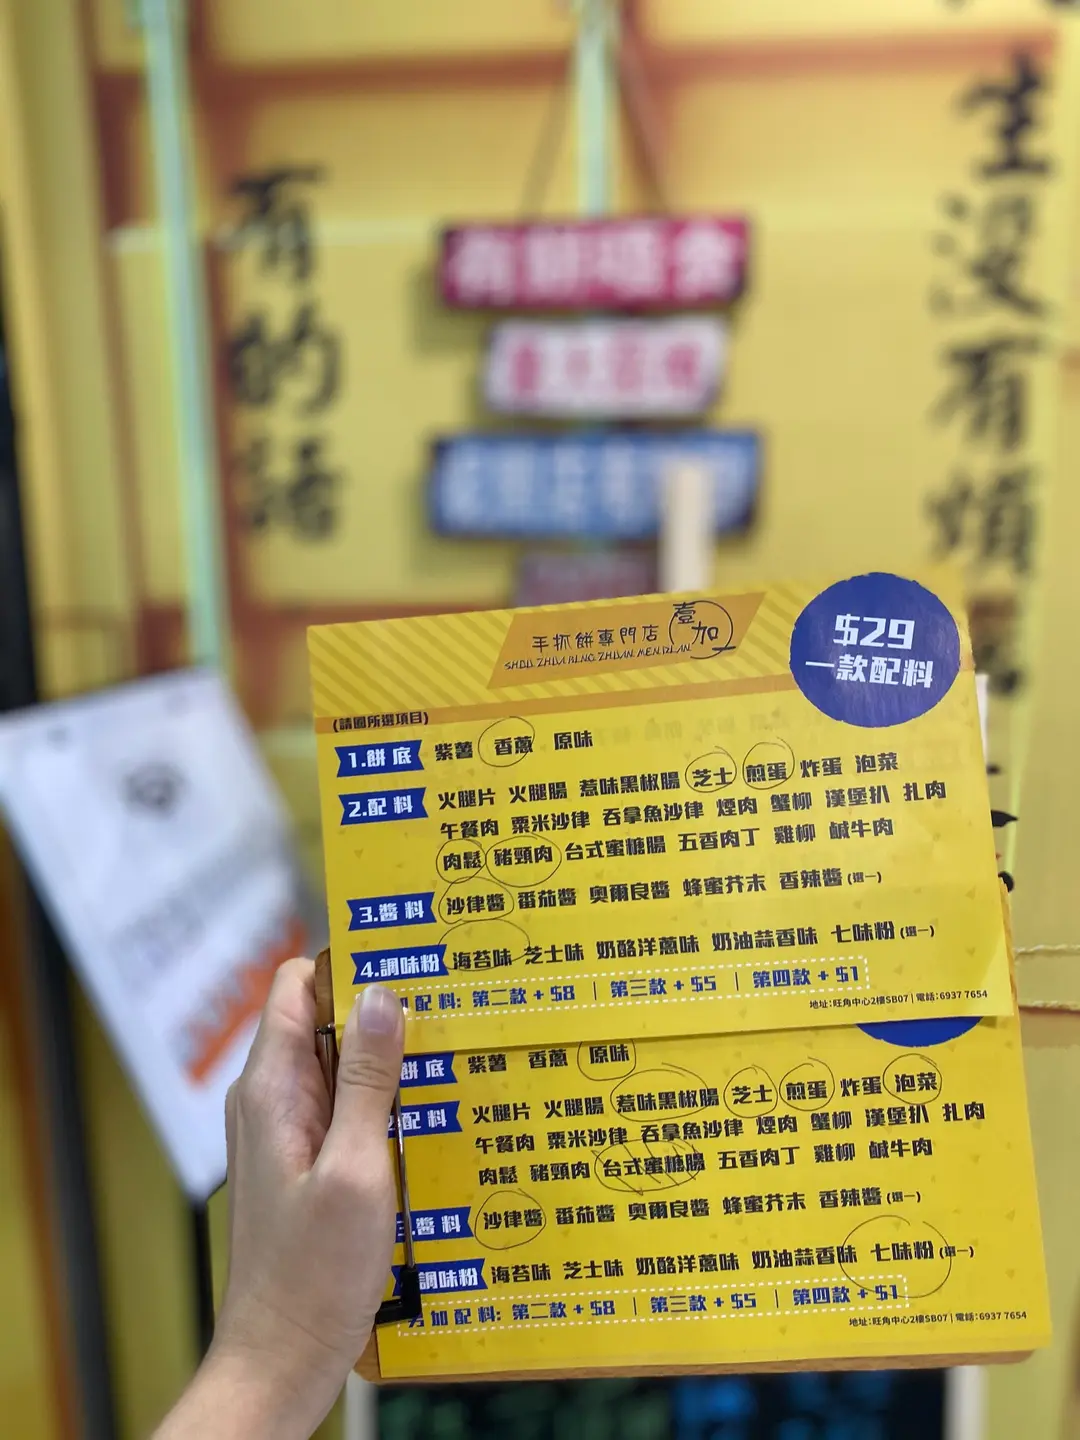 有的話
生沒有煩
手抓餅專門店 壹加一
SHOU ZHUA BING ZHUAN MEN DIAN
$29
一款配料
(請圈所選項目)
1.餅底 紫薯 香蔥 原味
2.配料 火腿片 火腿腸 惹味黑椒腸 芝士 煎蛋 炸蛋 泡菜
午餐肉 粟米沙律 吞拿魚沙律 煙肉 蟹柳 漢堡扒 扎肉
肉鬆 豬頸肉 台式蜜糖腸 五香肉丁 雞柳 鹹牛肉
3.醬料 沙律醬 番茄醬 奧爾良醬 蜂蜜芥末 香辣醬 (選一)
4.調味粉 海苔味 芝士味 奶酪洋蔥味 奶油蒜香味 七味粉 (選一)
加配料: 第二款 + $8 | 第三款 + $5 | 第四款 + $1
地址:旺角中心2樓SB07 | 電話:6937 7654
餅底 紫薯 香蔥 原味
2.配料 火腿片 火腿腸 惹味黑椒腸 芝士 煎蛋 炸蛋 泡菜
午餐肉 粟米沙律 吞拿魚沙律 煙肉 蟹柳 漢堡扒 扎肉
肉鬆 豬頸肉 台式蜜糖腸 五香肉丁 雞柳 鹹牛肉
3.醬料 沙律醬 番茄醬 奧爾良醬 蜂蜜芥末 香辣醬 (選一)
調味粉 海苔味 芝士味 奶酪洋蔥味 奶油蒜香味 七味粉 (選一)
另加配料: 第二款 + $8 | 第三款 + $5 | 第四款 + $1
地址:旺角中心2樓SB07 | 電話:6937 7654